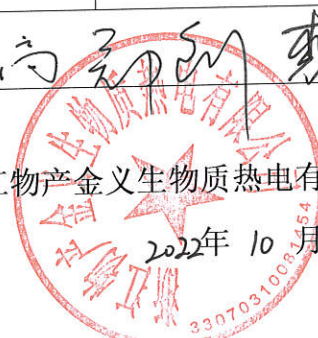 高
江物产金义生物质热电有
2022年 10 月
浙江物产金义生物质热电有限公司
33070310081454